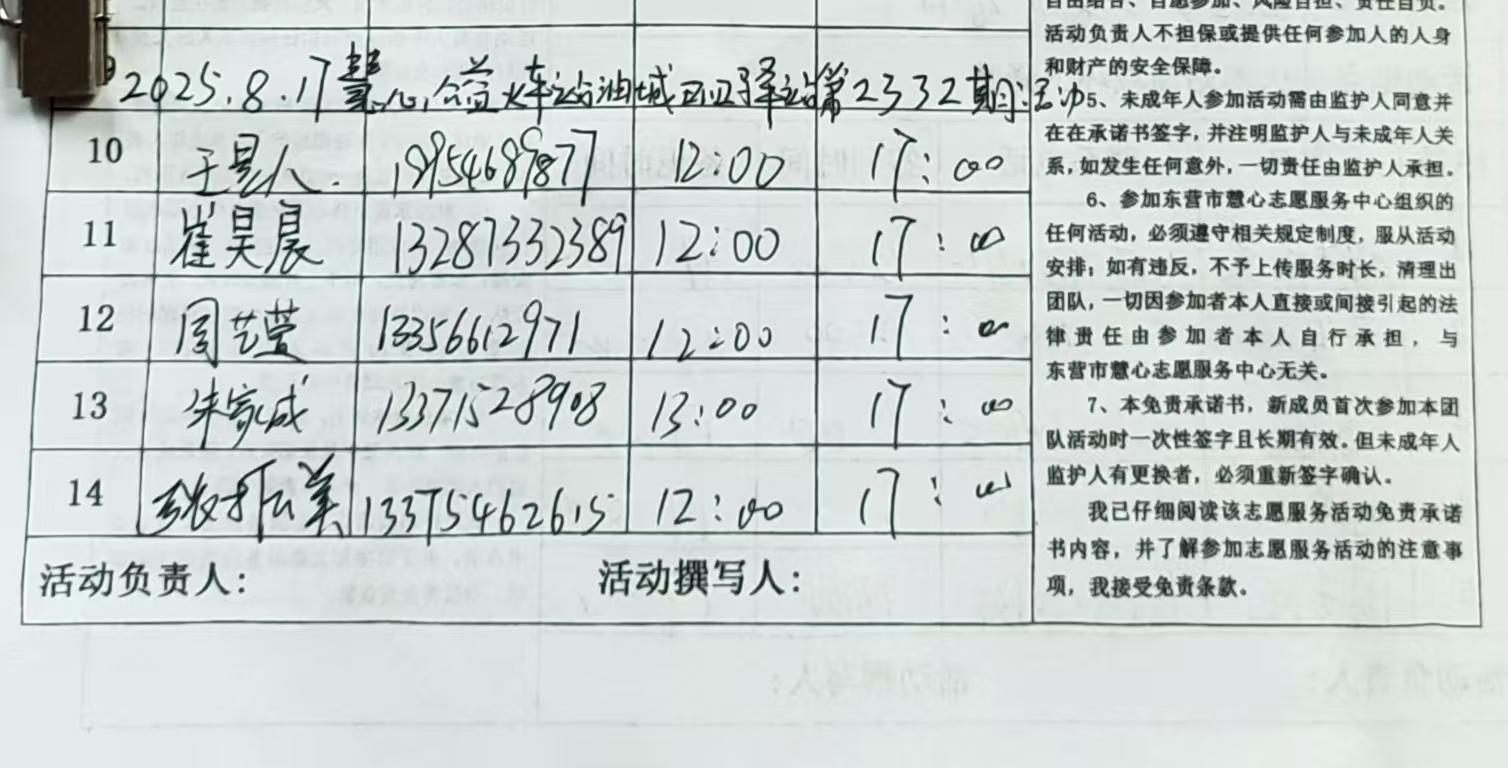 2025.8.17慧心公益火车站油城四四驿站第2332期活动
10 于昰人. 18954689877 12:00 17:00
11 崔昊晨 13287332389 12:00 17:00
12 周芝莹 13356612971 12:00 17:00
13 朱家成 13371528908 13:00 17:00
14 13375462615 12:00 17:00
活动负责人： 活动撰写人：
自由结合、自愿参加、风险自担、责任自负。
活动负责人不担保或提供任何参加人的人身
和财产的安全保障。
5、未成年人参加活动需由监护人同意并
在在承诺书签字，并注明监护人与未成年人关
系，如发生任何意外，一切责任由监护人承担。
6、参加东营市慧心志愿服务中心组织的
任何活动，必须遵守相关规定制度，服从活动
安排；如有违反，不予上传服务时长，清理出
团队，一切因参加者本人直接或间接引起的法
律责任由参加者本人自行承担，与
东营市慧心志愿服务中心无关。
7、本免责承诺书，新成员首次参加本团
队活动时一次性签字且长期有效。但未成年人
监护人有更换者，必须重新签字确认。
我已仔细阅读该志愿服务活动免责承诺
书内容，并了解参加志愿服务活动的注意事
项，我接受免责条款。